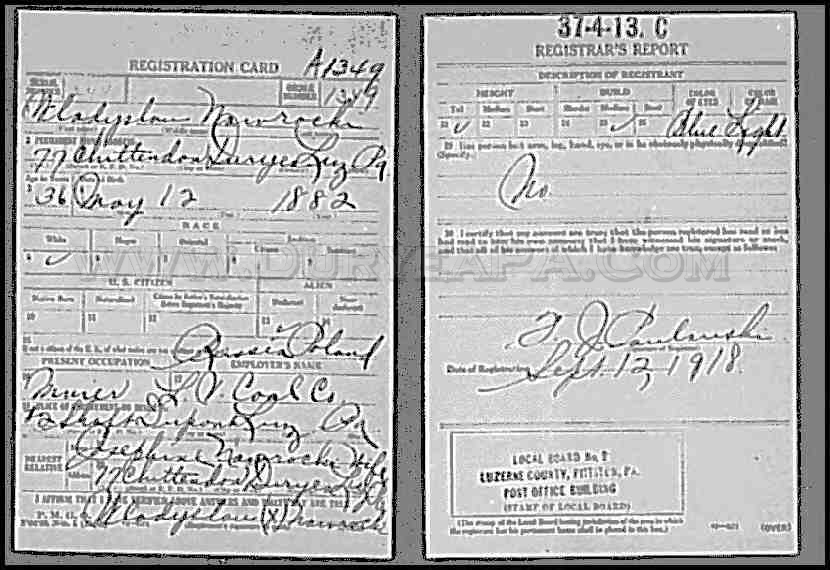 REGISTRATION CARD A1349
SERIAL NUMBER
ORDER NUMBER 1349
Wladyslaw Nawrocki
2 PERMANENT HOME ADDRESS
77 Chittendon Duryea Luz Pa
Age in Years
Date of Birth
36 May 12 1882
RACE
White
Negro
Oriental
Indian
5 6 7 8 9
Citizen
U. S. CITIZEN
ALIEN
Native Born
Naturalized
Citizen by Father's Naturalization Before Registrant's Majority
Declarant
Non-declarant
10 11 12 13 14
15
If not a citizen of the U. S., of what nation are you
Russia Poland
PRESENT OCCUPATION
EMPLOYER'S NAME
Miner L. V. Coal Co.
Shaft Dupont Luz Pa
NEAREST RELATIVE
Josephine Nawrocki Wife
Address 77 Chittendon Duryea
I AFFIRM THAT I HAVE VERIFIED ABOVE ANSWERS AND THAT THEY ARE TRUE
P. M. G. O.
Form No. 1
Wladyslaw (X) Nawrocki
37-4-13. C
REGISTRAR'S REPORT
DESCRIPTION OF REGISTRANT
HEIGHT
BUILD
COLOR OF EYES
COLOR OF HAIR
Tall
Medium
Short
Slender
Medium
Stout
21 22 23 24 25 26
Blue Light
29 Has person lost arm, leg, hand, eye, or is he obviously physically disqualified?
(Specify.)
No
30 I certify that my answers are true; that the person registered has read or has had read to him his own answers; that I have witnessed his signature or mark, and that all of his answers of which I have knowledge are true, except as follows:
Date of Registration Sept. 12, 1918.
LOCAL BOARD No. 2
LUZERNE COUNTY, PITTSTON, PA.
POST OFFICE BUILDING
(STAMP OF LOCAL BOARD)
(The stamp of the Local Board having jurisdiction of the area in which the registrant has his permanent home shall be placed in this box.)
(OVER)
WWW.DURYEAPA.COM